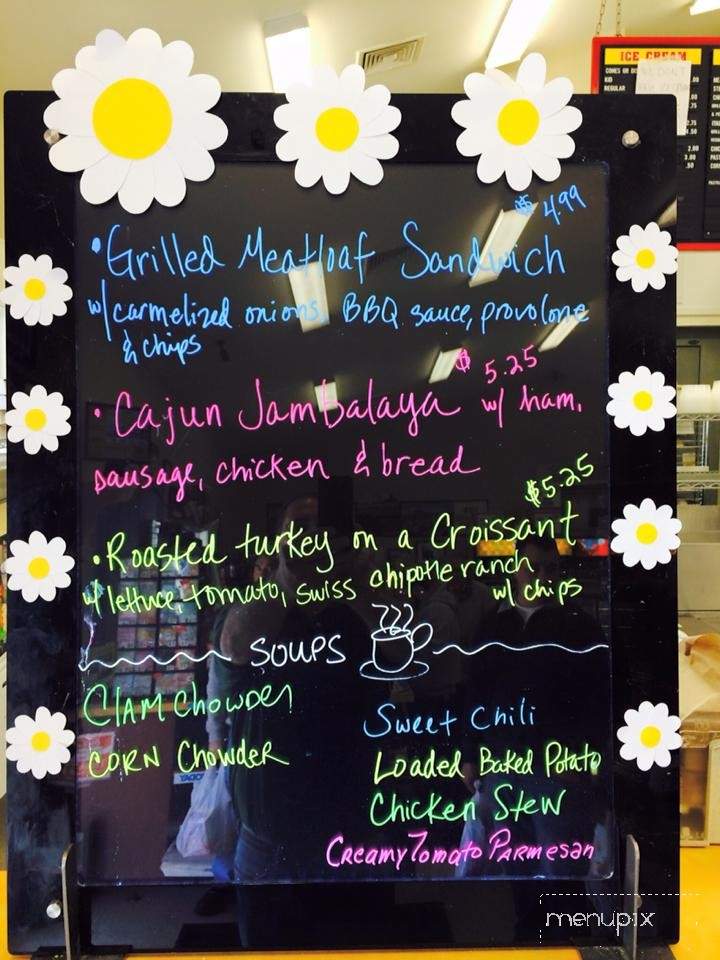 ICE CREAM
REGULAR
$ 4.99
• Grilled Meatloaf Sandwich
w/ carmelized onions, BBQ sauce, provolone
& chips
$ 5.25
• Cajun Jambalaya w/ ham,
sausage, chicken & bread
$5.25
• Roasted turkey on a Croissant
w/ lettuce, tomato, swiss chipotle ranch
w/ chips
SOUPS
Clam Chowder
Corn Chowder
Sweet Chili
Loaded Baked Potato
Chicken Stew
Creamy Tomato Parmesan
menupix